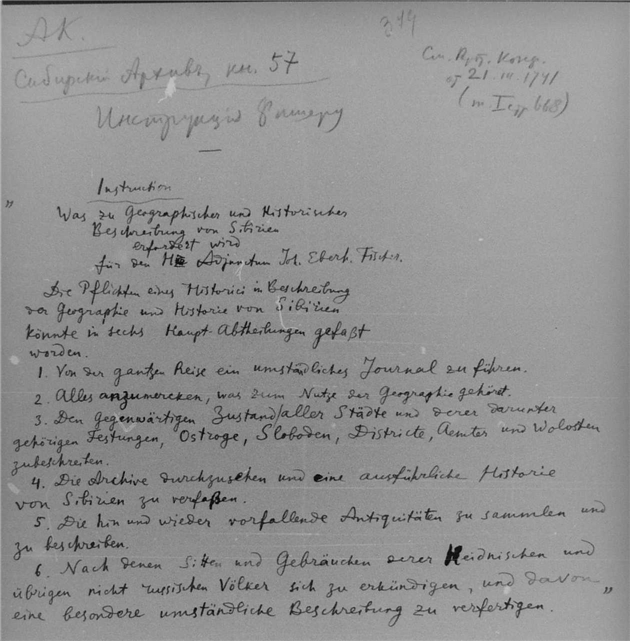 АК.
Сибирский Архивъ, кн. 57
Инструкція Фишеру
См. Арх. Конф.
от 21.III.1741
(т. I стр 668)
„
Instruction
Was zu Geographischer und Historischer
Beschreibung von Sibirien
erfordert wird
für den H Adjunctum Joh. Eberh. Fischer.
Die Pflichten eines Historici in Beschreibung
der Geographie und Historie von Sibirien
könnte in sechs Haupt-Abtheilungen gefaßt
worden.
1. Von der gantzen Reise ein umständliches Journal zu führen.
2. Alles anzumercken, was zum Nutze der Geographie gehöret.
3. Den gegenwärtigen Zustand aller Städte und derer darunter
gehörigen Festungen, Ostroge, Sloboden, Districte, Aemter und Wolosten
zubeschreiben.
4. Die Archive durchzusehen und eine ausführliche Historie
von Sibirien zu verfaßen.
5. Die hin und wieder vorfallende Antiquitäten zu sammlen und
zu beschreiben.
6. Nach denen Sitten und Gebräuchen derer Heidnischen und
übrigen nicht russischen Völker sich zu erkündigen, und davon
eine besondere umständliche Beschreibung zu verfertigen.”